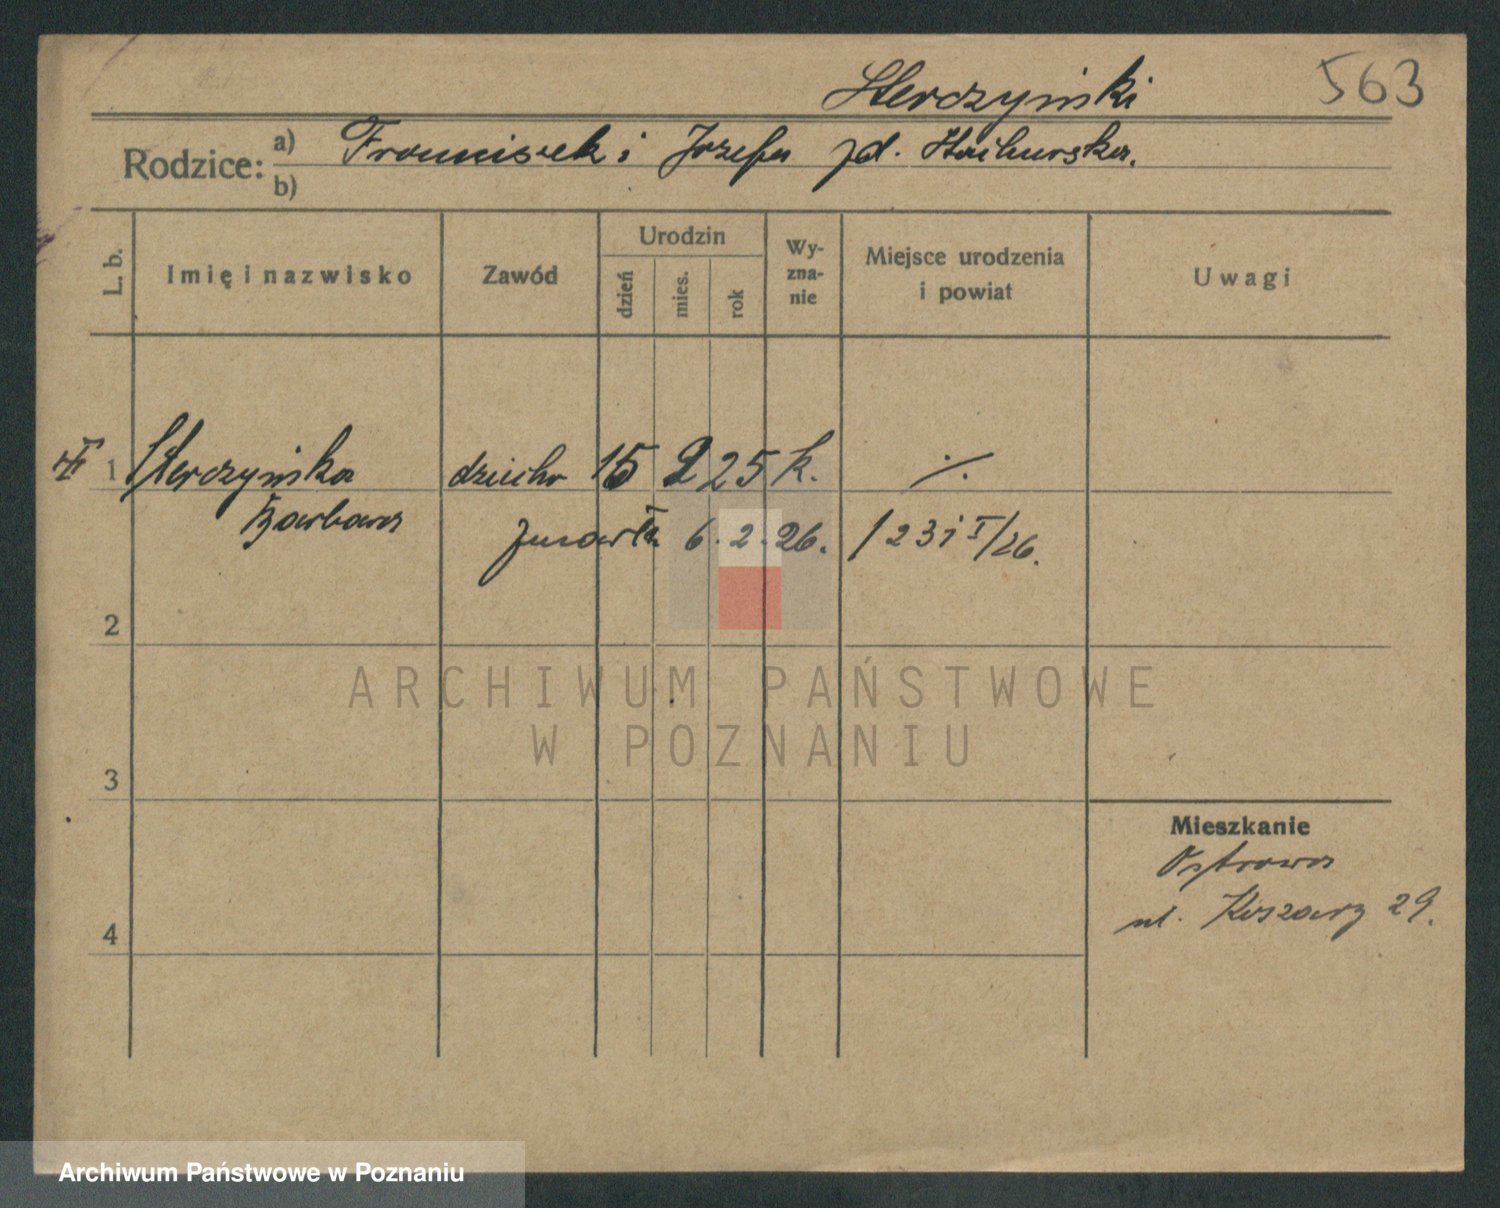 Sterczyński 563
Rodzice: a) Franciszek i Józefa zd.
b)
L. b. Imię i nazwisko Zawód Urodzin Wy-zna-nie Miejsce urodzenia i powiat Uwagi
dzień mies. rok
1 Sterczyńska dziecko 15 2 25 k. ·/.
Barbara zmarła 6.2.26. /231 I/26.
2
ARCHIWUM PAŃSTWOWE
W POZNANIU
3
Mieszkanie
Ostrowo
4 ul. Koszary 29.
Archiwum Państwowe w Poznaniu